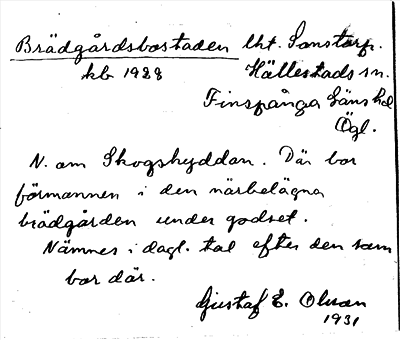 Brädgårdsbostaden lht. Sonstorp.
kb 1928 Hällestads sn.
Finspånga läns hd
Ögl.
N. om Skogshyddan. Där bor
förmannen i den närbelägna
brädgården under godset.
Nämnes i dagl. tal efter den som
bor där.
Gustaf E. Olsson
1931